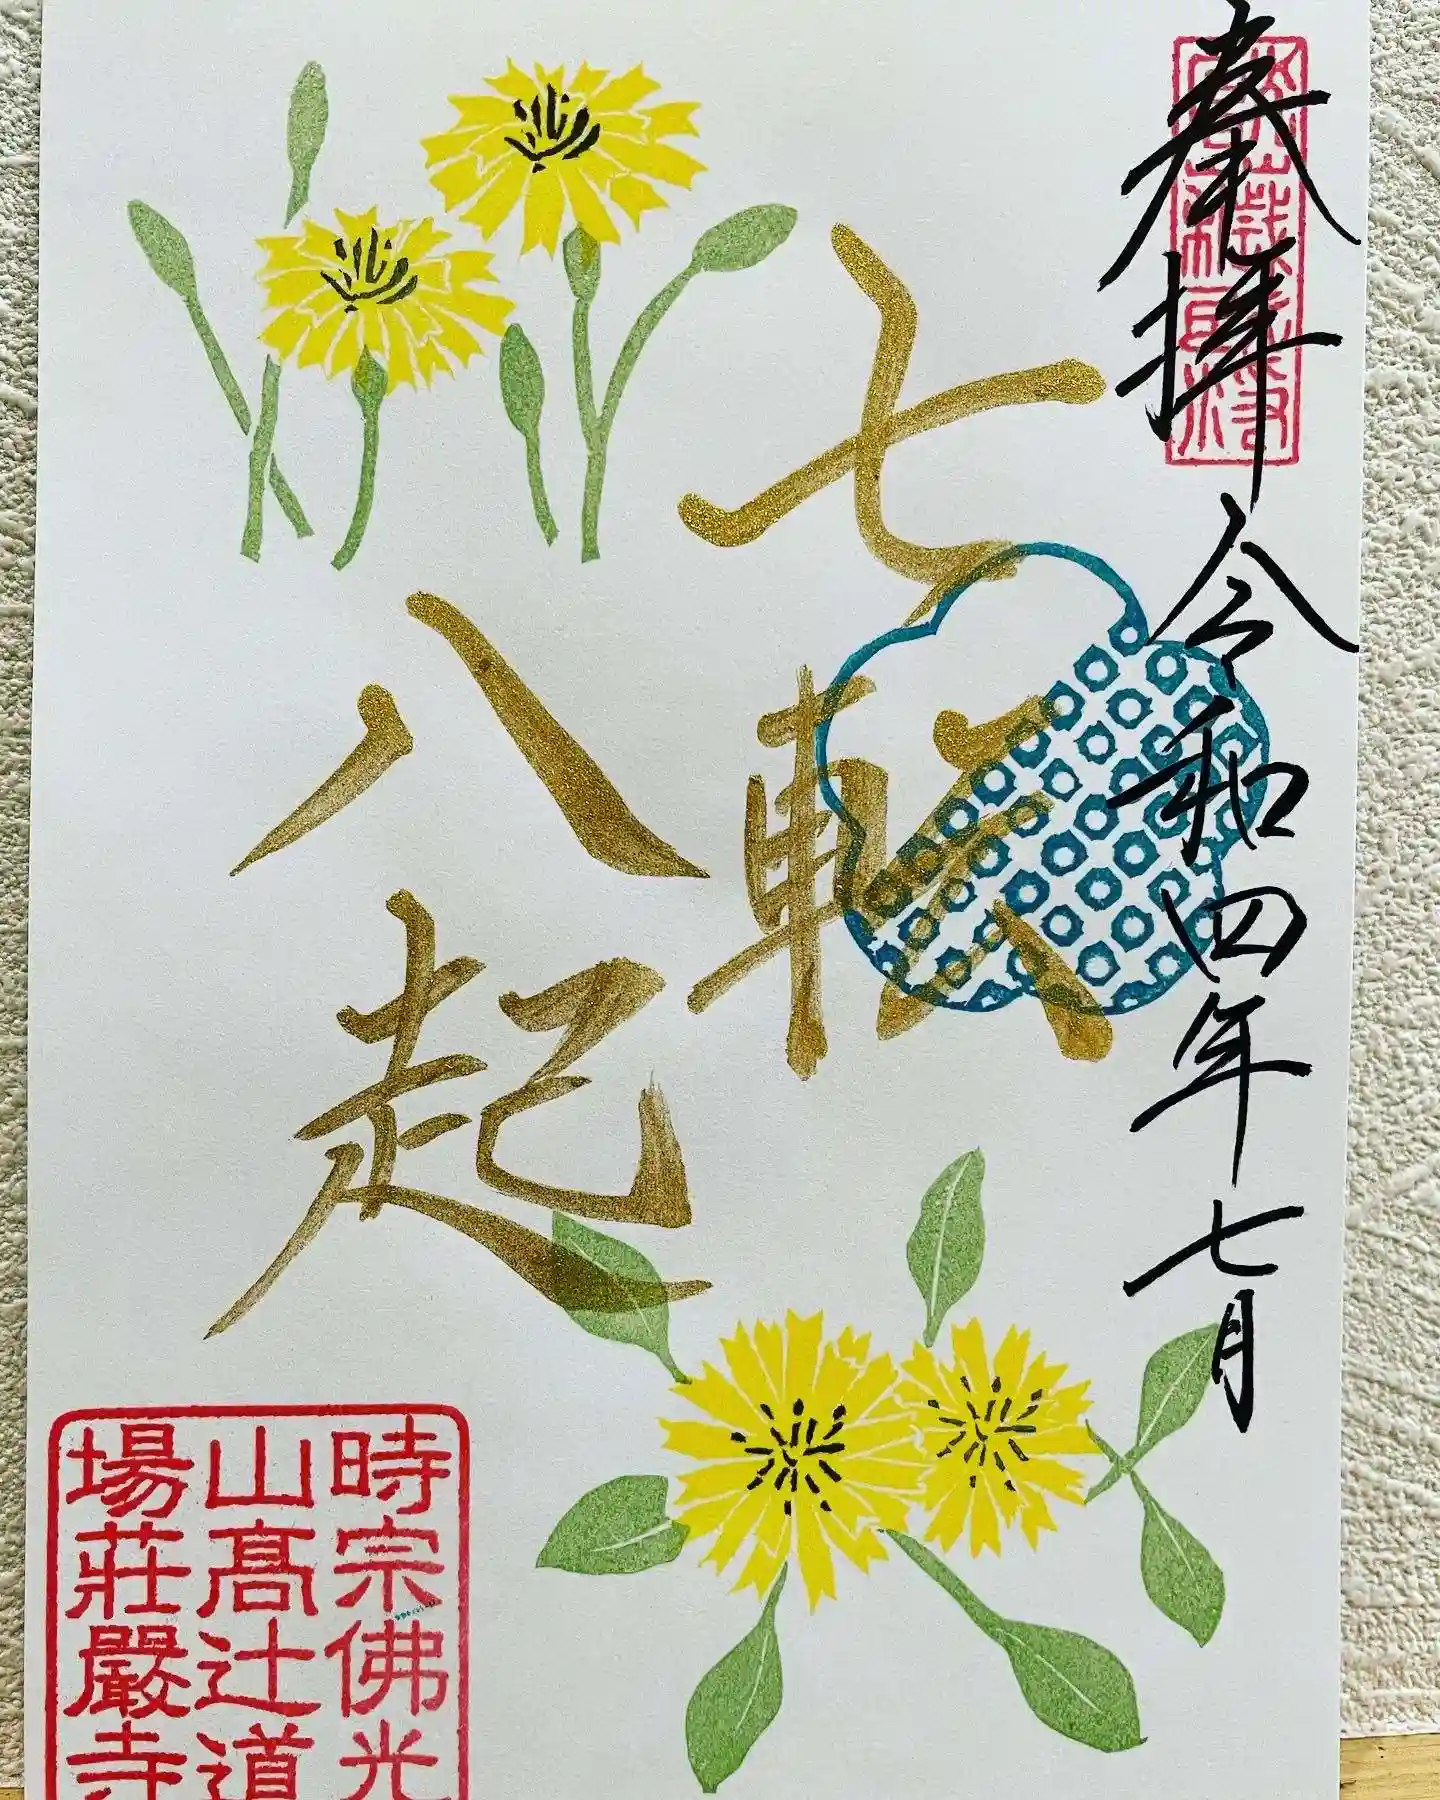 奉拝 令和四年七月
七転
八起
時宗佛光
山髙辻道
場莊嚴寺